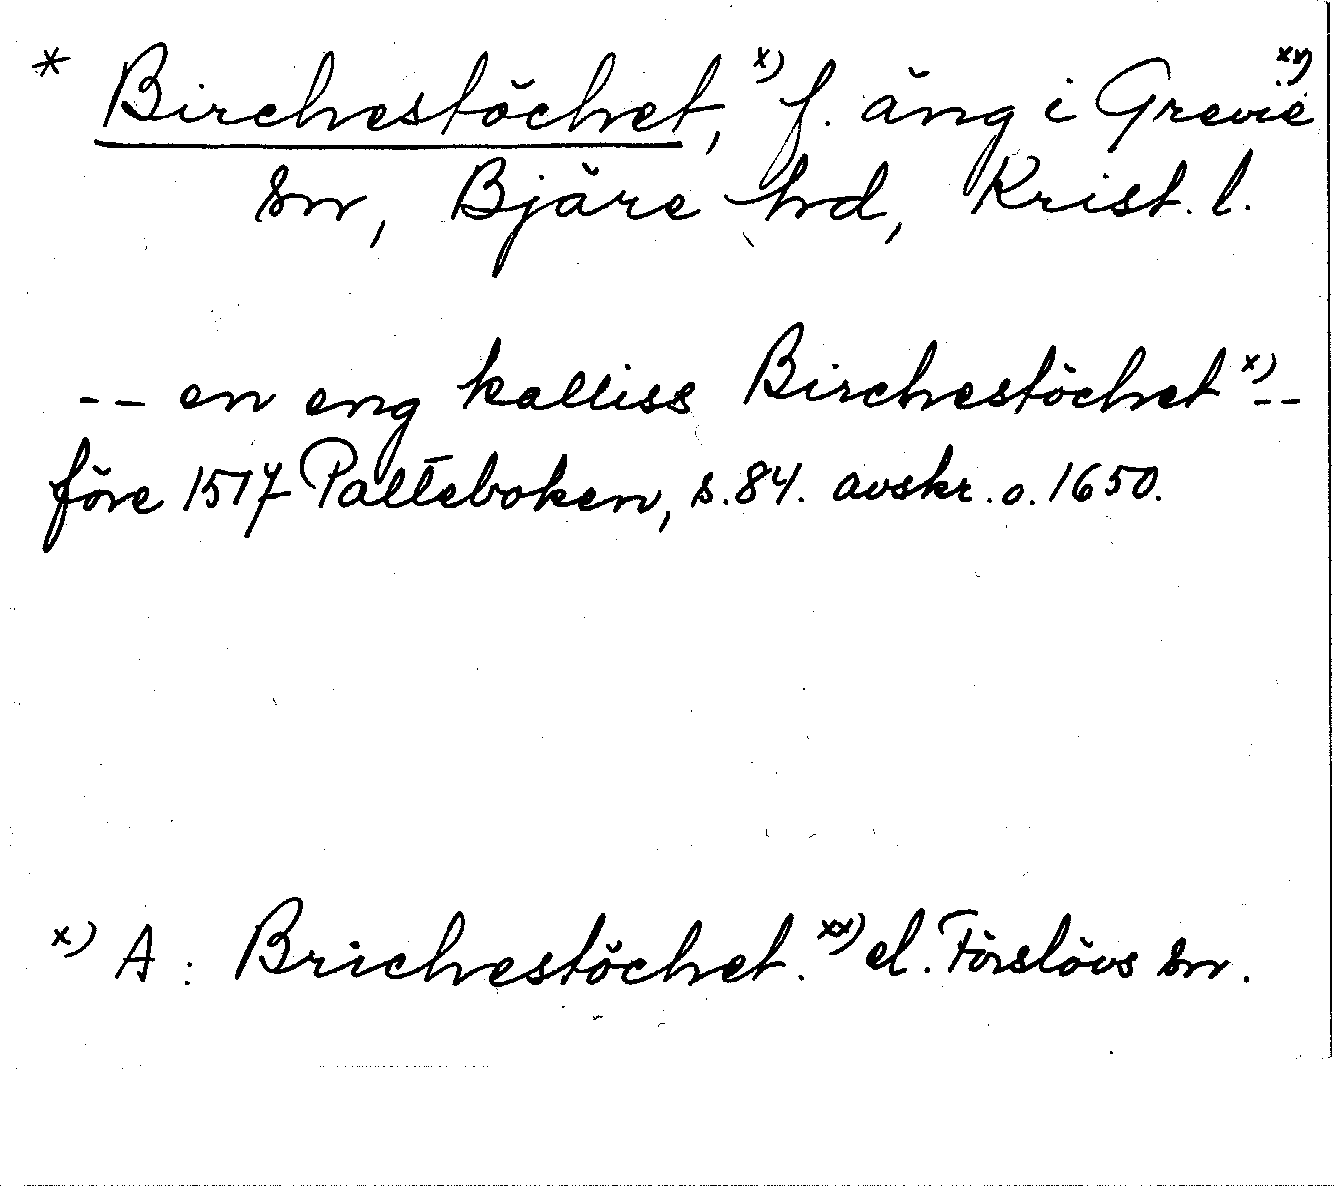 * Birchestöchet, x) f. äng i Grevie xx)
sn, Bjäre hd, Krist. l.
-- en eng kalliss Birchestöchet x) --
före 1517 Palteboken, s.84. avskr. o. 1650.
x) A: Brichestöchet. xx) el. Förslövs sn.